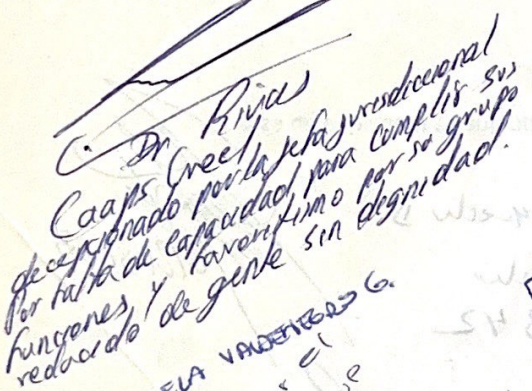 C. Dr Rivas
Caaps Creel,
decepcionado por la jefa jurisdiccional
por falta de capacidad para cumplir sus
funciones y favoritismo por su grupo
reducido de gente sin dignidad.
ELA VALDENEGRO G.